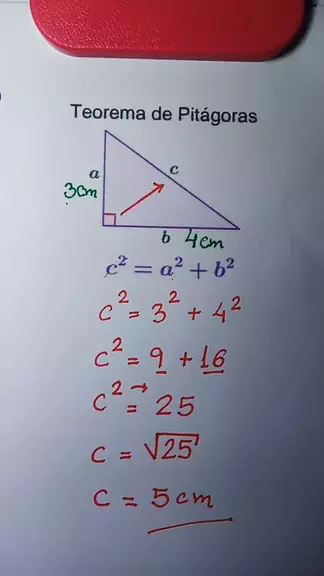 Teorema de Pitágoras
a
c
3cm
b 4cm
c² = a² + b²
c² = 3² + 4²
c² = 9 + 16
c² = 25
c = √25
c = 5cm